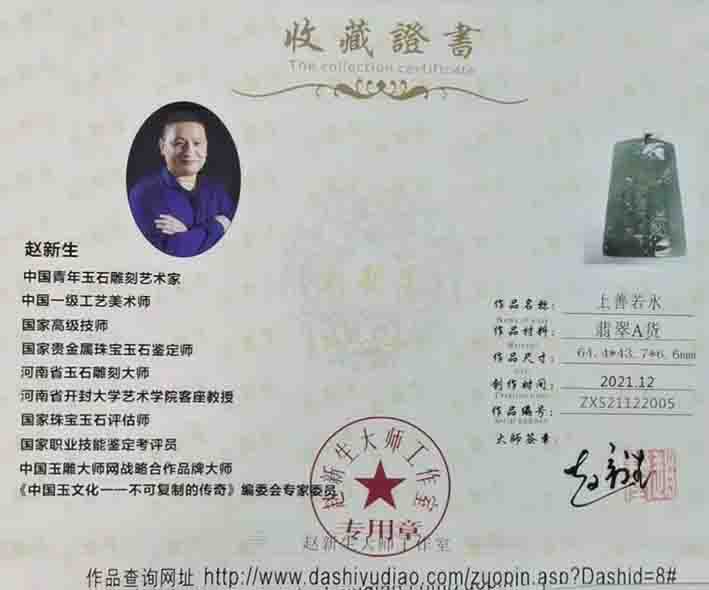 收藏證書
The collection certificate
赵新生
中国青年玉石雕刻艺术家
中国一级工艺美术师
国家高级技师
国家贵金属珠宝玉石鉴定师
河南省玉石雕刻大师
河南省开封大学艺术学院客座教授
国家珠宝玉石评估师
国家职业技能鉴定考评员
中国玉雕大师网战略合作品牌大师
《中国玉文化一一不可复制的传奇》编委会专家委员
作品名称: 上善若水
作品材料: 翡翠A货
作品尺寸: 64.4*43.7*6.6mm
制作时间: 2021.12
作品编号: ZXS21122005
大师签章:
赵新生大师工作室
专用章
赵新生大师工作室
作品查询网址 http://www.dashiyudiao.com/zuopin.asp?Dashid=8#